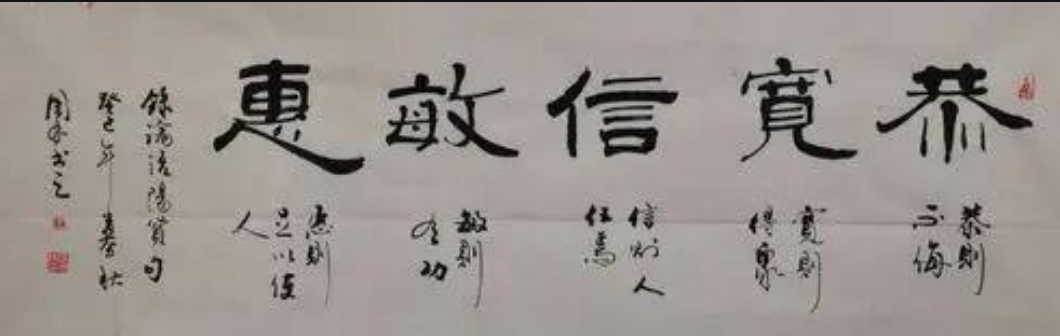 恭寬信敏惠
恭則
不侮
寬則
得眾
信則人
任焉
敏則
有功
惠則
足以使
人
錄論語陽貨句
癸巳年秋
周书之